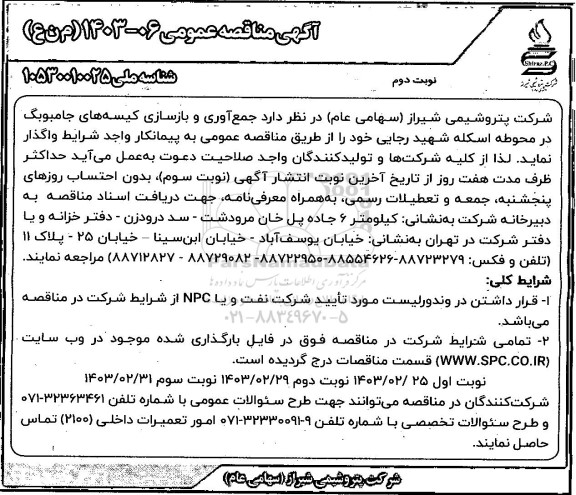 آگهی مناقصه عمومی ۰۶-۱۴۰۳ (م ن ع)
Shiraz.P.C
شرکت پتروشیمی شیراز
نوبت دوم
شناسه ملی ۱۰۵۳۰۰۱۰۰۲۵
شرکت پتروشیمی شیراز (سهامی عام) در نظر دارد جمع‌آوری و بازسازی کیسه‌های جامبوبگ
در محوطه اسکله شهید رجایی خود را از طریق مناقصه عمومی به پیمانکار واجد شرایط واگذار
نماید. لذا از کلیه شرکت‌ها و تولیدکنندگان واجد صلاحیت دعوت به‌عمل می‌آید حداکثر
ظرف مدت هفت روز از تاریخ آخرین نوبت انتشار آگهی (نوبت سوم)، بدون احتساب روزهای
پنجشنبه، جمعه و تعطیلات رسمی، به‌همراه معرفی‌نامه، جهت دریافت اسناد مناقصه به
دبیرخانه شرکت به‌نشانی: کیلومتر ۶ جاده پل خان مرودشت - سد درودزن - دفتر خزانه و یا
دفتر شرکت در تهران به‌نشانی: خیابان یوسف‌آباد - خیابان ابن‌سینا – خیابان ۲۵ - پلاک ۱۱
(تلفن و فکس: ۸۸۷۲۳۲۷۹-۸۸۵۵۴۶۲۶-۸۸۷۲۲۹۵۰ - ۸۸۷۲۹۰۸۲ - ۸۸۷۱۲۸۲۷) مراجعه نمایند.
شرایط کلی:
۱- قرار داشتن در وندورلیست مورد تأیید شرکت نفت و یا NPC از شرایط شرکت در مناقصه
می‌باشد.
۲- تمامی شرایط شرکت در مناقصه فوق در فایل بارگذاری شده موجود در وب سایت
(WWW.SPC.CO.IR) قسمت مناقصات درج گردیده است.
نوبت اول ۲۵ /۱۴۰۳/۰۲ نوبت دوم ۱۴۰۳/۰۲/۲۹ نوبت سوم ۱۴۰۳/۰۲/۳۱
شرکت‌کنندگان در مناقصه می‌توانند جهت طرح سئوالات عمومی با شماره تلفن ۳۲۳۶۳۴۶۱-۰۷۱
و طرح سئوالات تخصصی با شماره تلفن ۹-۳۲۳۳۰۰۹۱-۰۷۱ امور تعمیرات داخلی (۲۱۰۰) تماس
حاصل نمایند.
ParsNamadData
۰۲۱-۸۸۳۴۹۶۷۰-۵
شرکت پتروشیمی شیراز (سهامی عام)